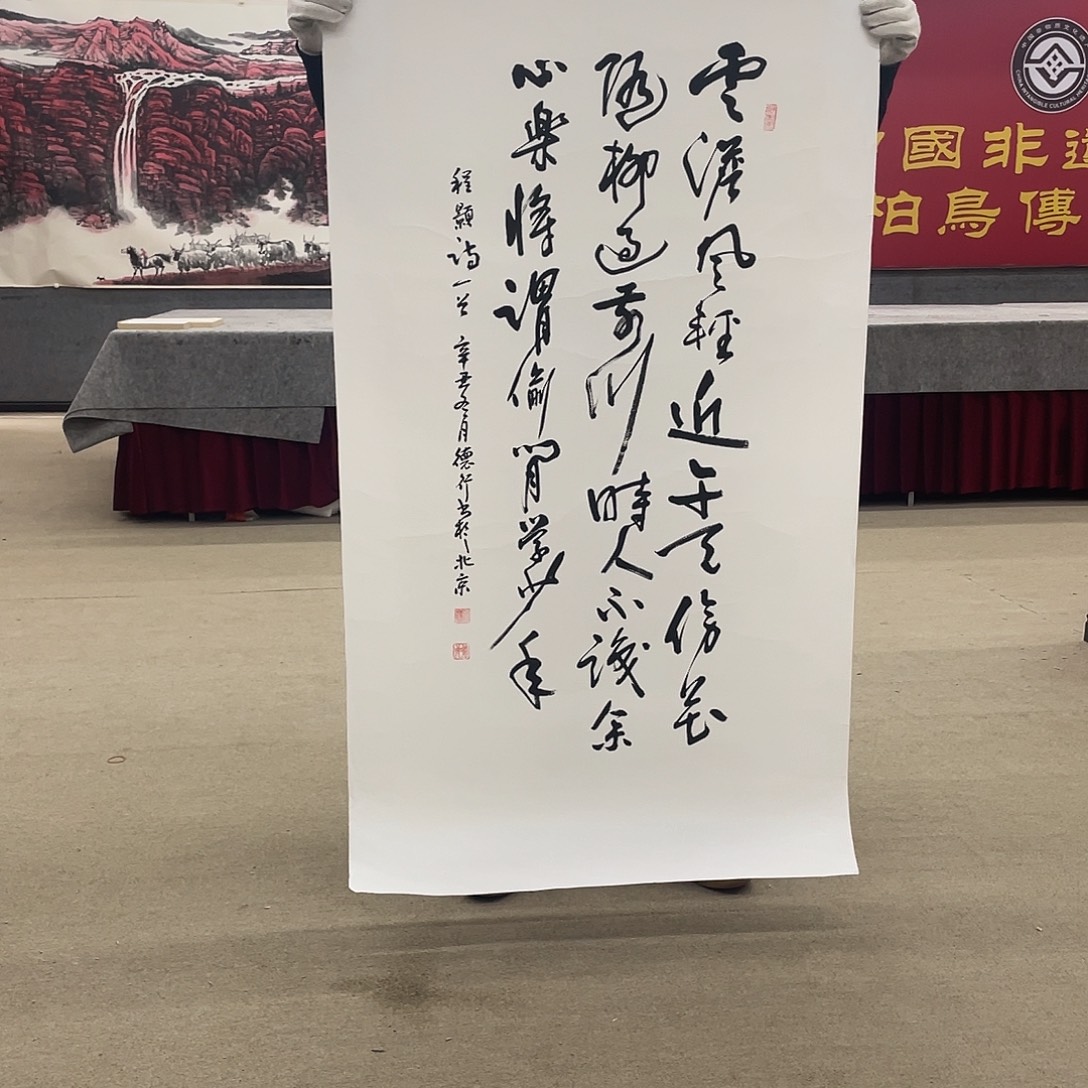 雲澹風輕近午天傍花
隨柳過前川時人不識余
心樂將謂偷閒学少年
程顥詩一首 辛丑冬月德行书於北京
CHINA INTANGIBLE CULTURAL
國非遗
柏鳥傳